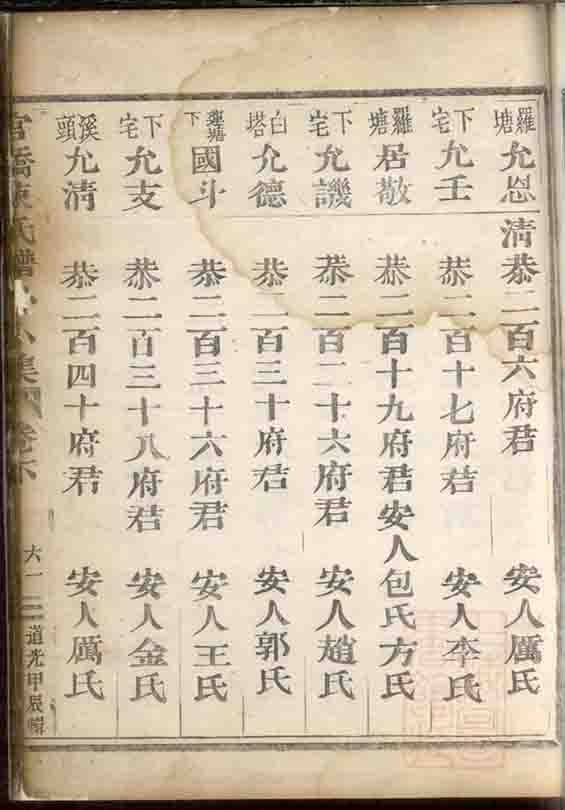 羅塘 允恩 清恭二百六府君 安人厲氏
下宅 允壬 恭二百十七府君 安人李氏
羅塘 居敬 恭二百十九府君 安人包氏方氏
下宅 允譏 恭二百二十六府君 安人趙氏
白塔 允德 恭二百三十府君 安人郭氏
蓮塘下 國斗 恭二百三十六府君 安人王氏
下宅 允支 恭二百三十八府君 安人金氏
溪頭 允清 恭二百四十府君 安人厲氏
官橋陳氏譜 集 卷 六一 道光甲辰輯